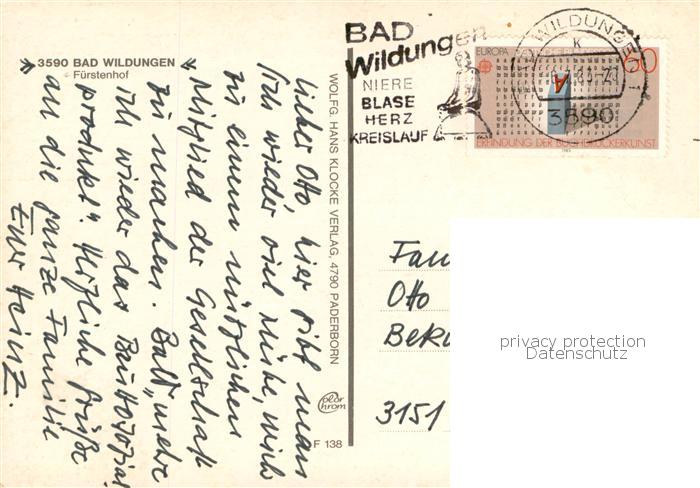 3590 BAD WILDUNGEN
Fürstenhof
Lieber Otto, hier gibt man
sich wieder viel Mühe, mich
zu einem nützlichen
Mitglied der Gesellschaft
zu machen. Bald "siehe
ich wieder das
produkt". Herzliche Grüße
an die ganze Familie
Euer Heinz.
WOLFG. HANS KLOCKE VERLAG, 4790 PADERBORN
color
chrom
F 138
BAD
Wildungen
NIERE
BLASE
HERZ
KREISLAUF
WILDUNGEN
K
3590
EUROPA
60
A
ERFINDUNG DER BUCHDRUCKERKUNST
1983
Fam
Otto
Bek
3151
privacy protection
Datenschutz